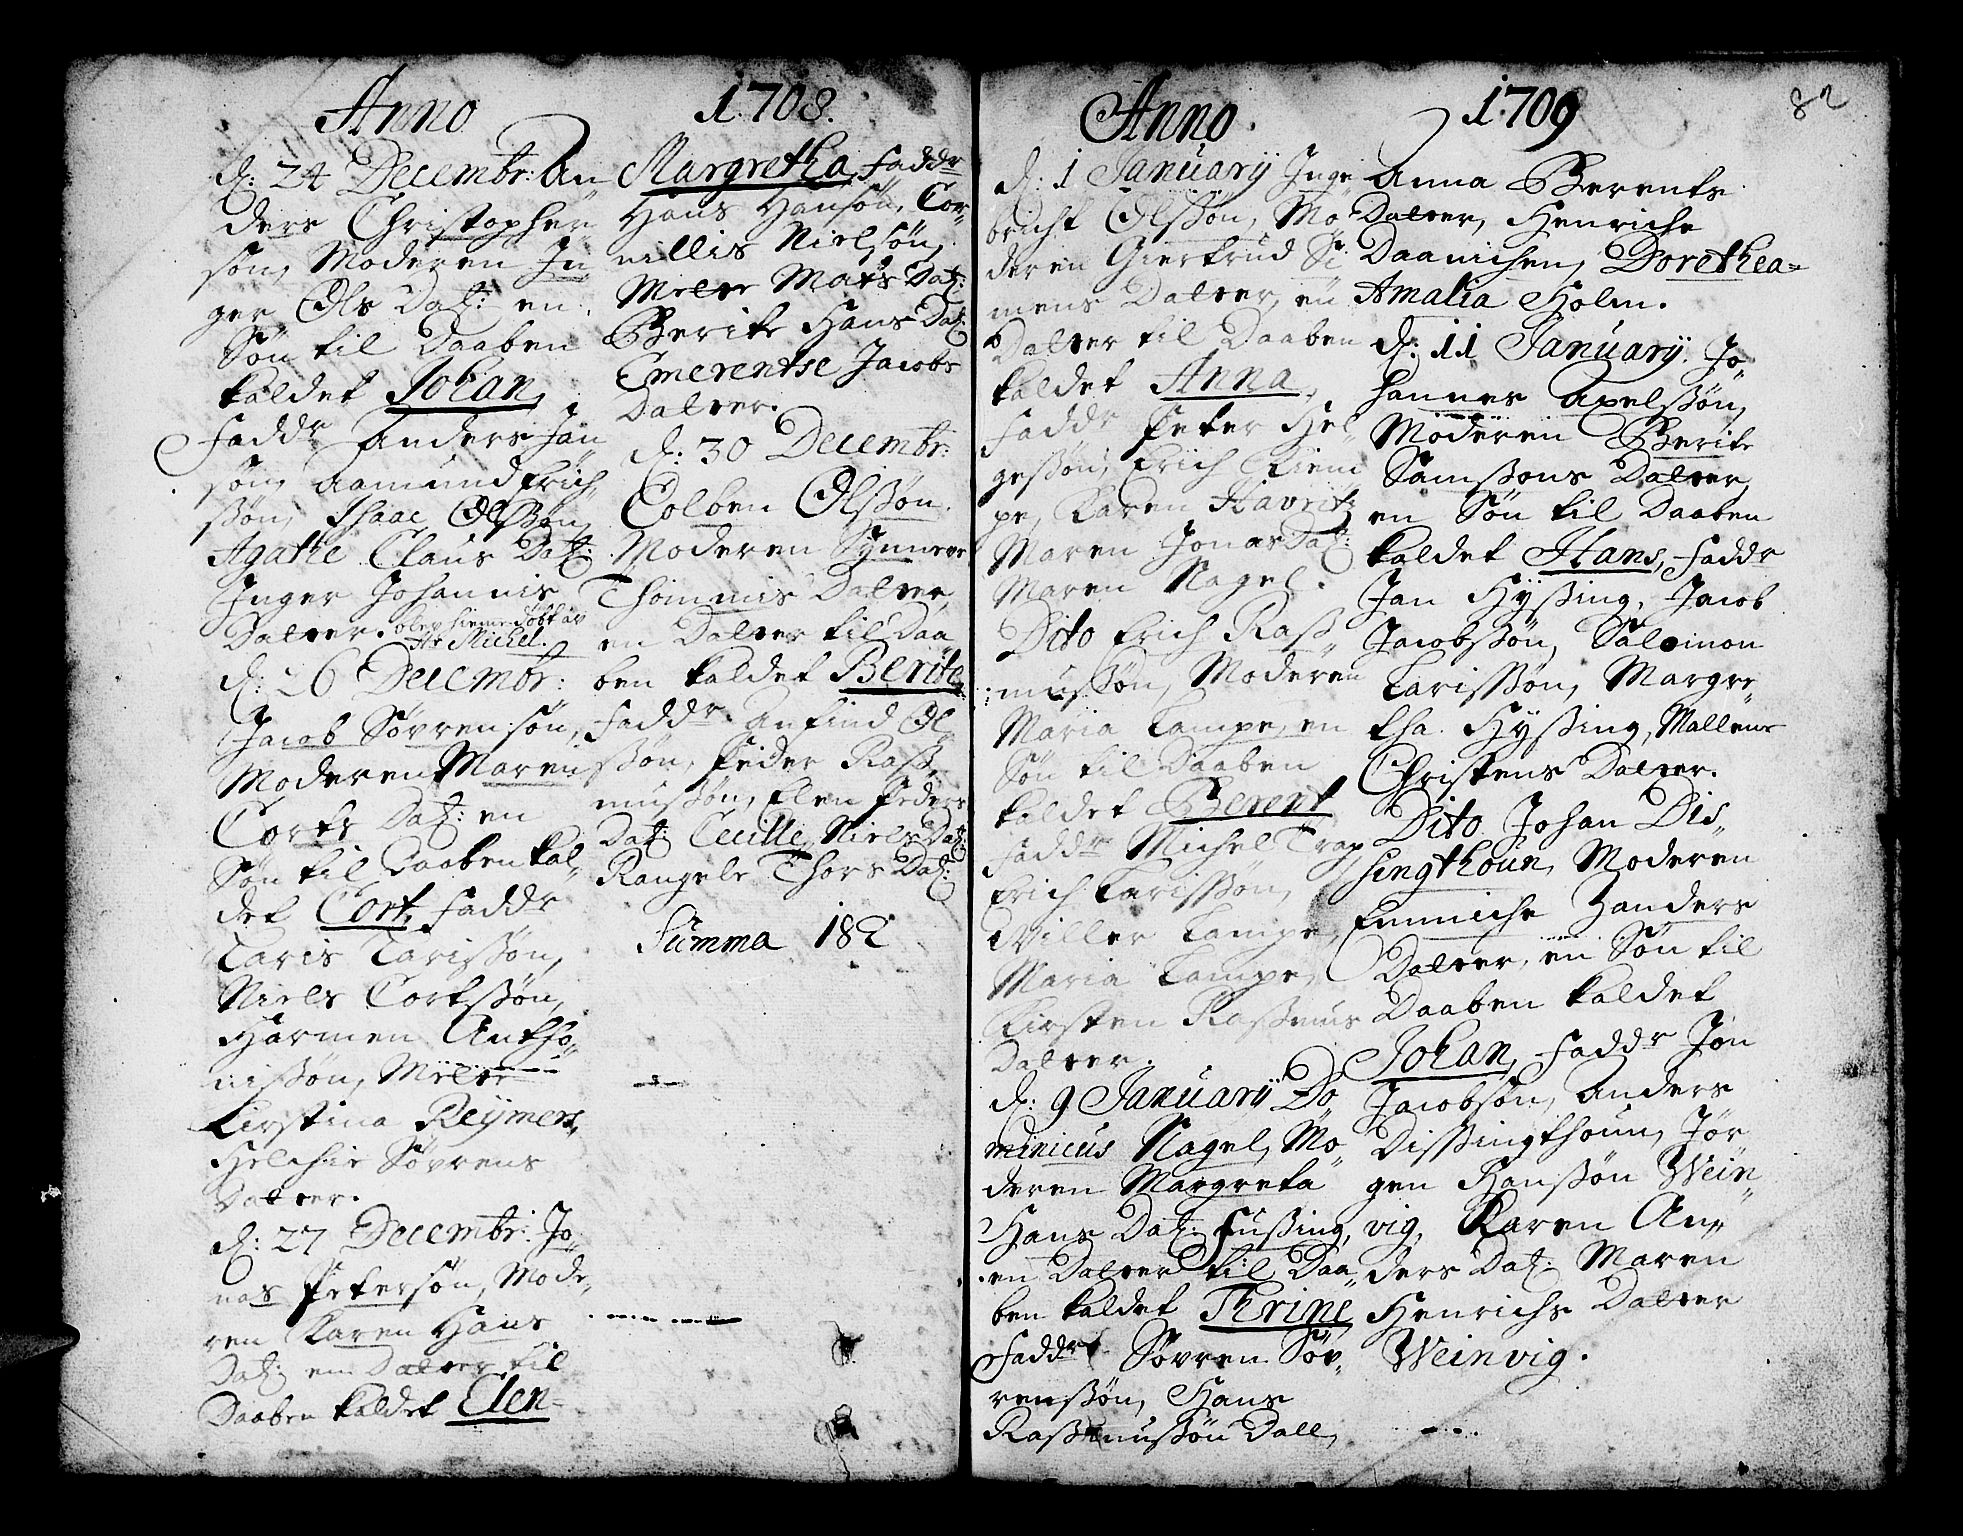 Anno 1708.
d: 24 Decembr: An
ders Christopher
søn, Moderen In
ger Ols Datt: en
Søn til Daaben
kaldet Johan,
Faddr Anders Jan
søn, Aamund Erich
ssøn, Isaac Olssøn
Agathe Claus Datt:
Inger Johannis
Datter. blev hieme døbt av
Hr Michel.
d: 26 Decembr:
Jacob Søvrensøn,
Moderen Maren
Corts Datt: en
Søn til Daaben kal„
det Cort, Faddr
Laris Larissøn,
Niels Cortssøn,
Harmen Antho„
nissøn,
Kirstina Reijmers,
Helchie Søvrens
Datter.
d: 27 Decembr: Jo„
nas Petersøn, Mode„
ren Karen Hans
Datt: en Datter til
Daaben kaldet Elen
Margretha, Faddr
Hans Hansøn, Cor„
nillis Nielsøn,
Mats Datt:
Berite Hans Datt:
Emerentse Jacobs
Datter.
d: 30 Decembr:
Colben Olssøn.
Moderen Synneve
Thommis Datter,
en Datter til Daa
ben kaldet Berite,
Faddr. Anfind Ol„
ssøn, Peder Rass„
mussøn, Elen Peders
Datt: Cecille Niels Datt:
Rangele Thors Datt:
Summa 182
82
Anno 1709
d: 1 Januarÿ Inge
bricht Olssøn, Mo
deren Giertrud Si
mens Datter, en
Datter til Daaben
kaldet Anna,
Faddr Peter Hel„
gessøn, Erich
pe, Karen Havritz
Maren Jonas Datt:
Maren Nagel.
Dito Erich Rass„
mussøn, Moderen
Maria Lampe, en
Søn til Daaben
kaldet Berent
Faddr Michel Trap,
Erich Larissøn,
Willer Lampe,
Maria Lampe,
Kirsten Rassmus
Datter.
d: 9 Januarÿ Do„
minicus Nagel, Mo„
deren Margreta
Hans Datt: Fussing,
en Datter til Daa„
ben kaldet Thrine,
Faddr Søvren Søv„
renssøn, Hans
Rassmussøn Dall,
Anna Berents
Datter, Henriche
Daanichen, Dorethea=
Amalia Holm.
d: 11 Januarÿ. Jo„
hannes Axelssøn,
Moderen Berite
Samssons Datter,
en Søn til Daaben
kaldet Hans, Faddr
Jan Hyssing, Jacob
Jacobssøn, Salomon
Larissøn, Margre„
tha Hyssing, Mallene
Christens Datter.
Dito Johan Dis„
singthoun, Moderen
Emmiche Zanders
Datter, en Søn til
Daaben kaldet
Johan, Faddr Jon
Jacobsøn, Anders
Dissingthoun, Jør
gen Hanssøn Wein„
vig, Karen An„
ders Datt: Maren
Henrichs Datter
Weinvig.